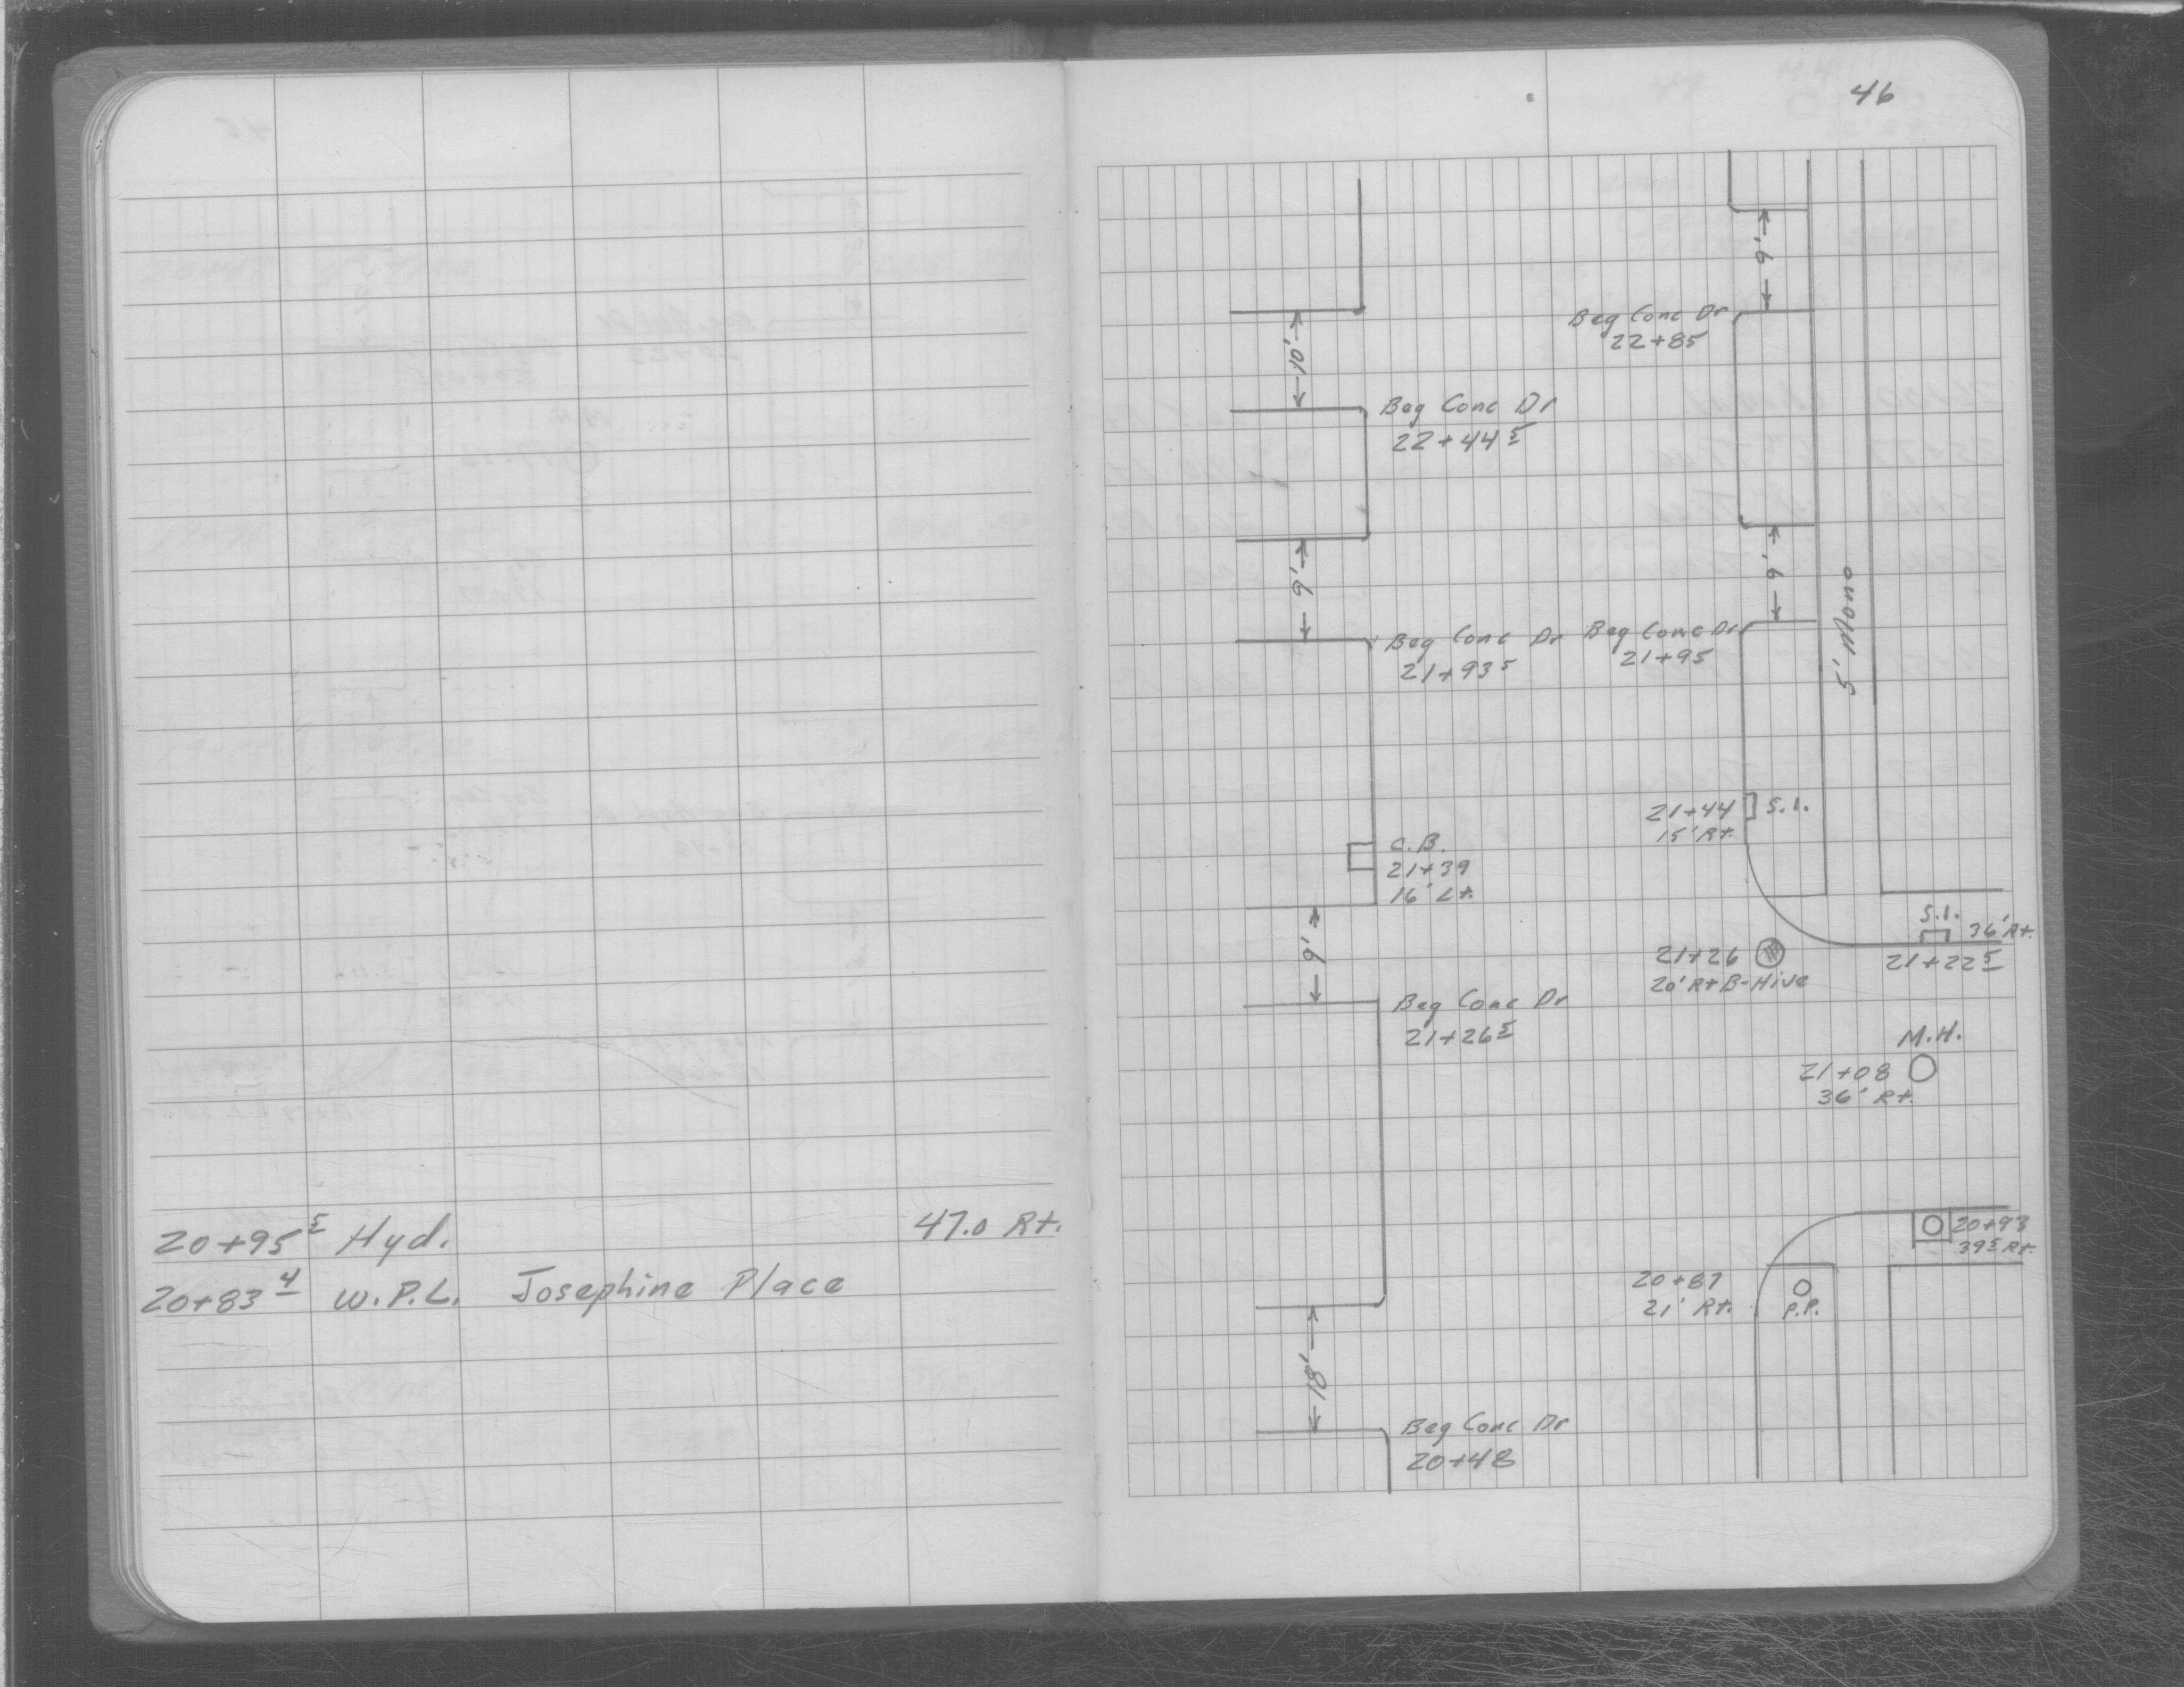 20+95 5 Hyd. 47.0 Rt.
20+83 4 W.P.L. Josephine Place
46
9'
Beg Conc Dr
22+85
10'
Beg Conc Dr
22+44 5
9'
9'
5' Mono
Beg Conc Dr
21+93 5
Beg Conc Dr
21+95
21+44 S.I.
15' Rt.
C.B.
21+39
16' Lt.
9'
S.I. 36' Rt.
21+22 5
21+26
20' Rt B-Hive
Beg Conc Dr
21+26 5
M.H.
21+08
36' Rt.
20+93
39 5 Rt.
20+87
21' Rt. P.P.
18'
Beg Conc Dr
20+48